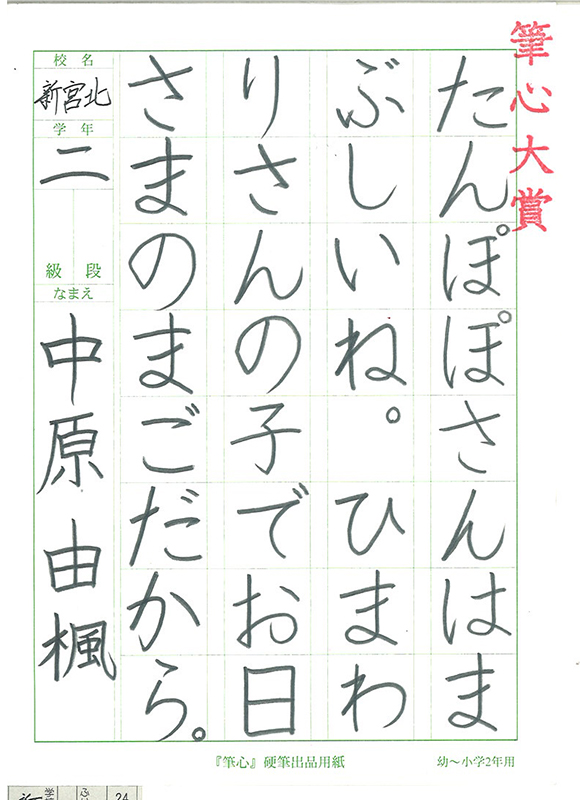 筆心大賞
たんぽぽさんはま
ぶしいね。ひまわ
りさんの子でお日
さまのまごだから。
校名
新宮北
学年
二
級段
なまえ
中原由楓
『筆心』硬筆出品用紙
幼～小学2年用
24